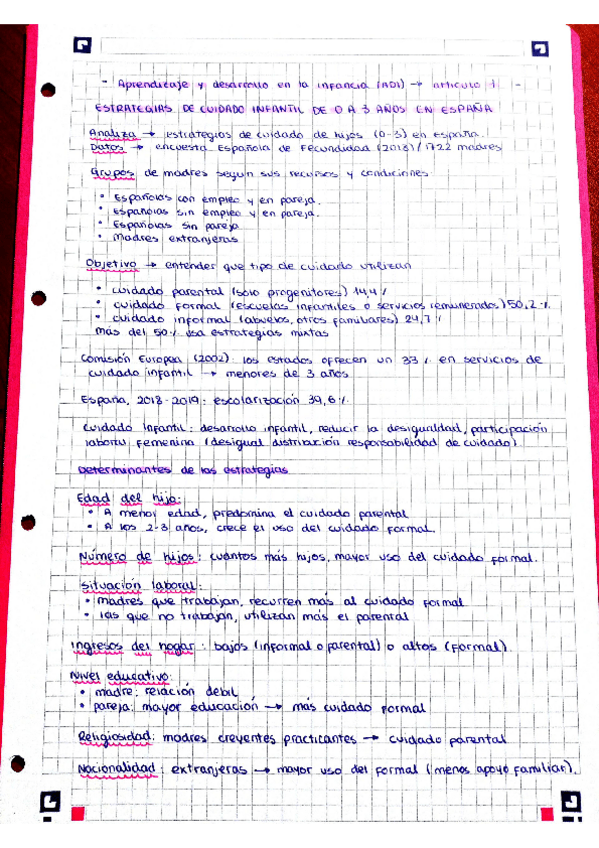 - Aprendizaje y desarrollo en la infancia (ADI) → artículo 1 -
ESTRATEGIAS DE CUIDADO INFANTIL DE 0 A 3 AÑOS EN ESPAÑA
Analiza → estrategias de cuidado de hijos (0-3) en España.
Datos → encuesta Española de Fecundidad (2018) / 1722 madres
Grupos de madres según sus recursos y condiciones:
• Españolas con empleo y en pareja.
• Españolas sin empleo y en pareja.
• Españolas sin pareja
• Madres extranjeras
Objetivo → entender que tipo de cuidado utilizan
• cuidado parental (solo progenitores) 14,4%
• cuidado formal (escuelas infantiles o servicios remunerados) 50,2%.
• cuidado informal (abuelos, otros familiares) 24,7%
Más del 50% usa estrategias mixtas
Comisión Europea (2002): los estados ofrecen un 33% en servicios de
cuidado infantil → menores de 3 años
España, 2018-2019: escolarización 39,6%.
Cuidado Infantil: desarrollo infantil, reducir la desigualdad, participación
laboral femenina (desigual distribución responsabilidad de cuidado).
Determinantes de las estrategias
Edad del hijo:
• A menor edad, predomina el cuidado parental
• A los 2-3 años, crece el uso del cuidado formal.
Número de hijos: cuantos más hijos, mayor uso del cuidado formal.
Situación laboral:
• madres que trabajan, recurren más al cuidado formal
• las que no trabajan, utilizan más el parental
Ingresos del hogar: bajos (informal o parental) o altos (formal).
Nivel educativo:
• madre: relación debil
• pareja: mayor educación → más cuidado formal
Religiosidad: madres creyentes practicantes → cuidado parental
Nacionalidad: extranjeras → mayor uso del formal (menos apoyo familiar).